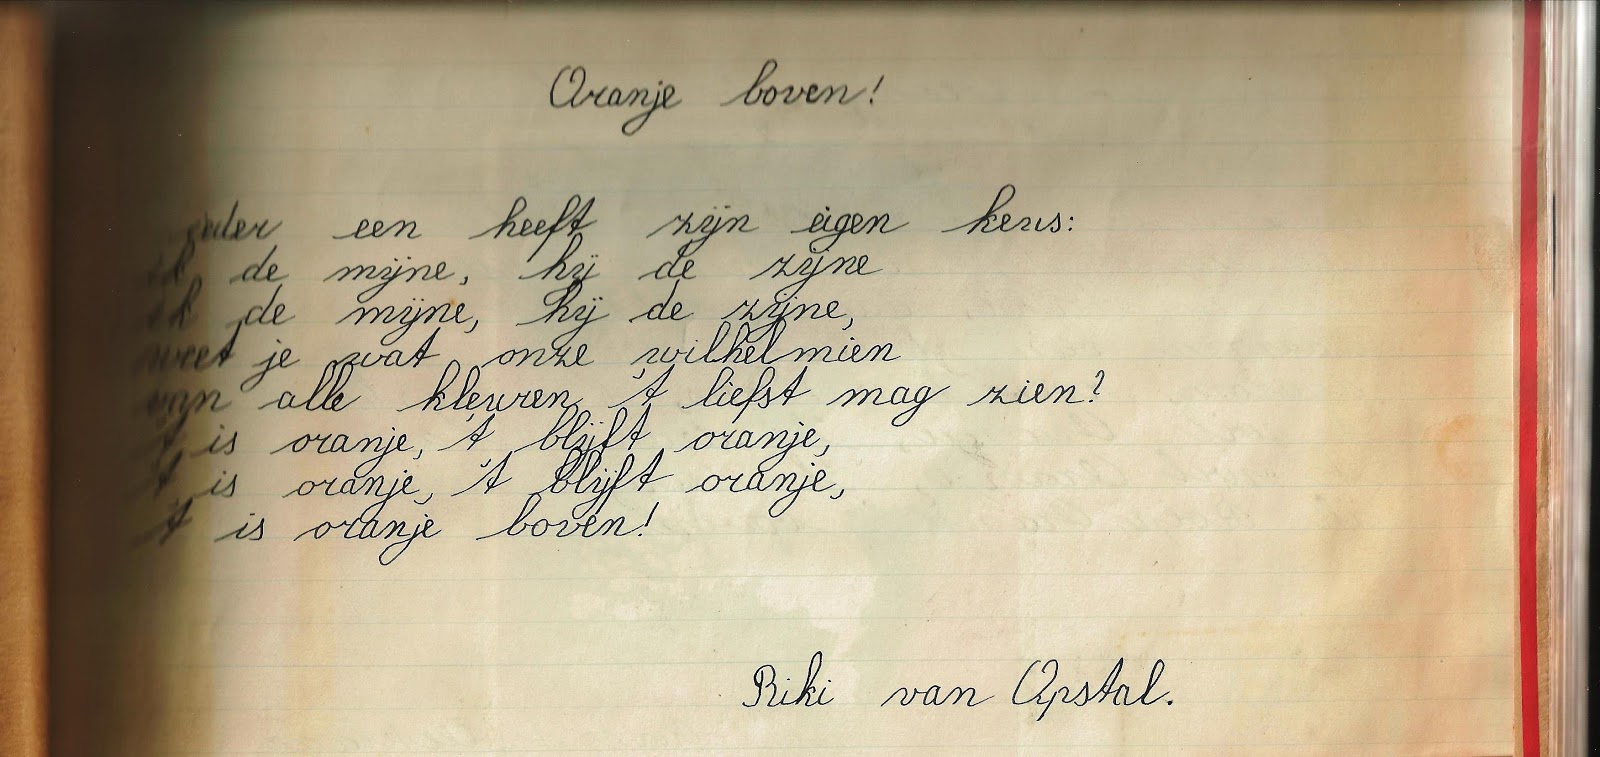 Oranje boven!
ieder een heeft zijn eigen keus:
ik de mijne, hij de zijne
ik de mijne, hij de zijne,
weet je wat onze wilhelmien
van alle kleuren 't liefst mag zien?
't is oranje, 't blijft oranje,
't is oranje, 't blijft oranje,
't is oranje boven!
Riki van Opstal.